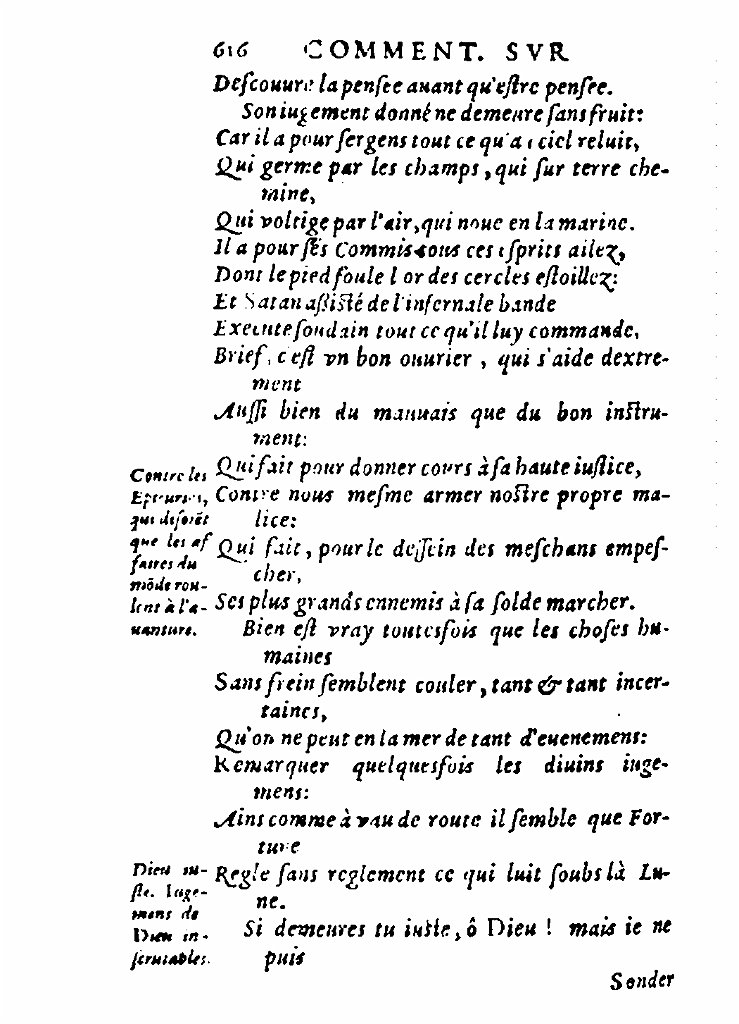 616 COMMENT. SVR
Deſcouure la penſee auant qu'eſtre penſee.
Son iugement donné ne demeure ſans fruit:
Car il a pour ſergens tout ce qu'au ciel reluit,
Qui germe par les champs, qui ſur terre che-
mine,
Qui voltige par l'air, qui nouë en la marine.
Il a pour ſes Commis tous ces eſprits ailez,
Dont le pied foule l'or des cercles eſtoillez:
Et Satan aſſiſté de l'infernale bande
Execute ſoudain tout ce qu'il luy commande,
Brief, c'eſt vn bon ouurier, qui s'aide dextre-
ment
Auſſi bien du mauuais que du bon inſtru-
ment:
Contre les
Epicuriẽs,
qui diſoiẽt
que les af
faires du
mõde rou-
lent à l'a-
uanture.
Qui fait pour donner cours à ſa haute iuſtice,
Contre nous meſme armer noſtre propre ma-
lice:
Qui fait, pour le deſſein des meſchans empeſ-
cher,
Ses plus grands ennemis à ſa ſolde marcher.
Bien eſt vray toutesfois que les choſes hu-
maines
Sans frein ſemblent couler, tant & tant incer-
taines,
Qu'on ne peut en la mer de tant d'euenemens:
Remarquer quelquesfois les diuins iuge-
mens:
Ains comme à vau de route il ſemble que For-
tune
Dieu iu-
ſte. Iuge-
mens de
Dieu in-
ſcrutables.
Regle ſans reglement ce qui luit ſoubs là Lu-
ne.
Si demeures tu iuſte, ô Dieu! mais ie ne
puis
Sonder